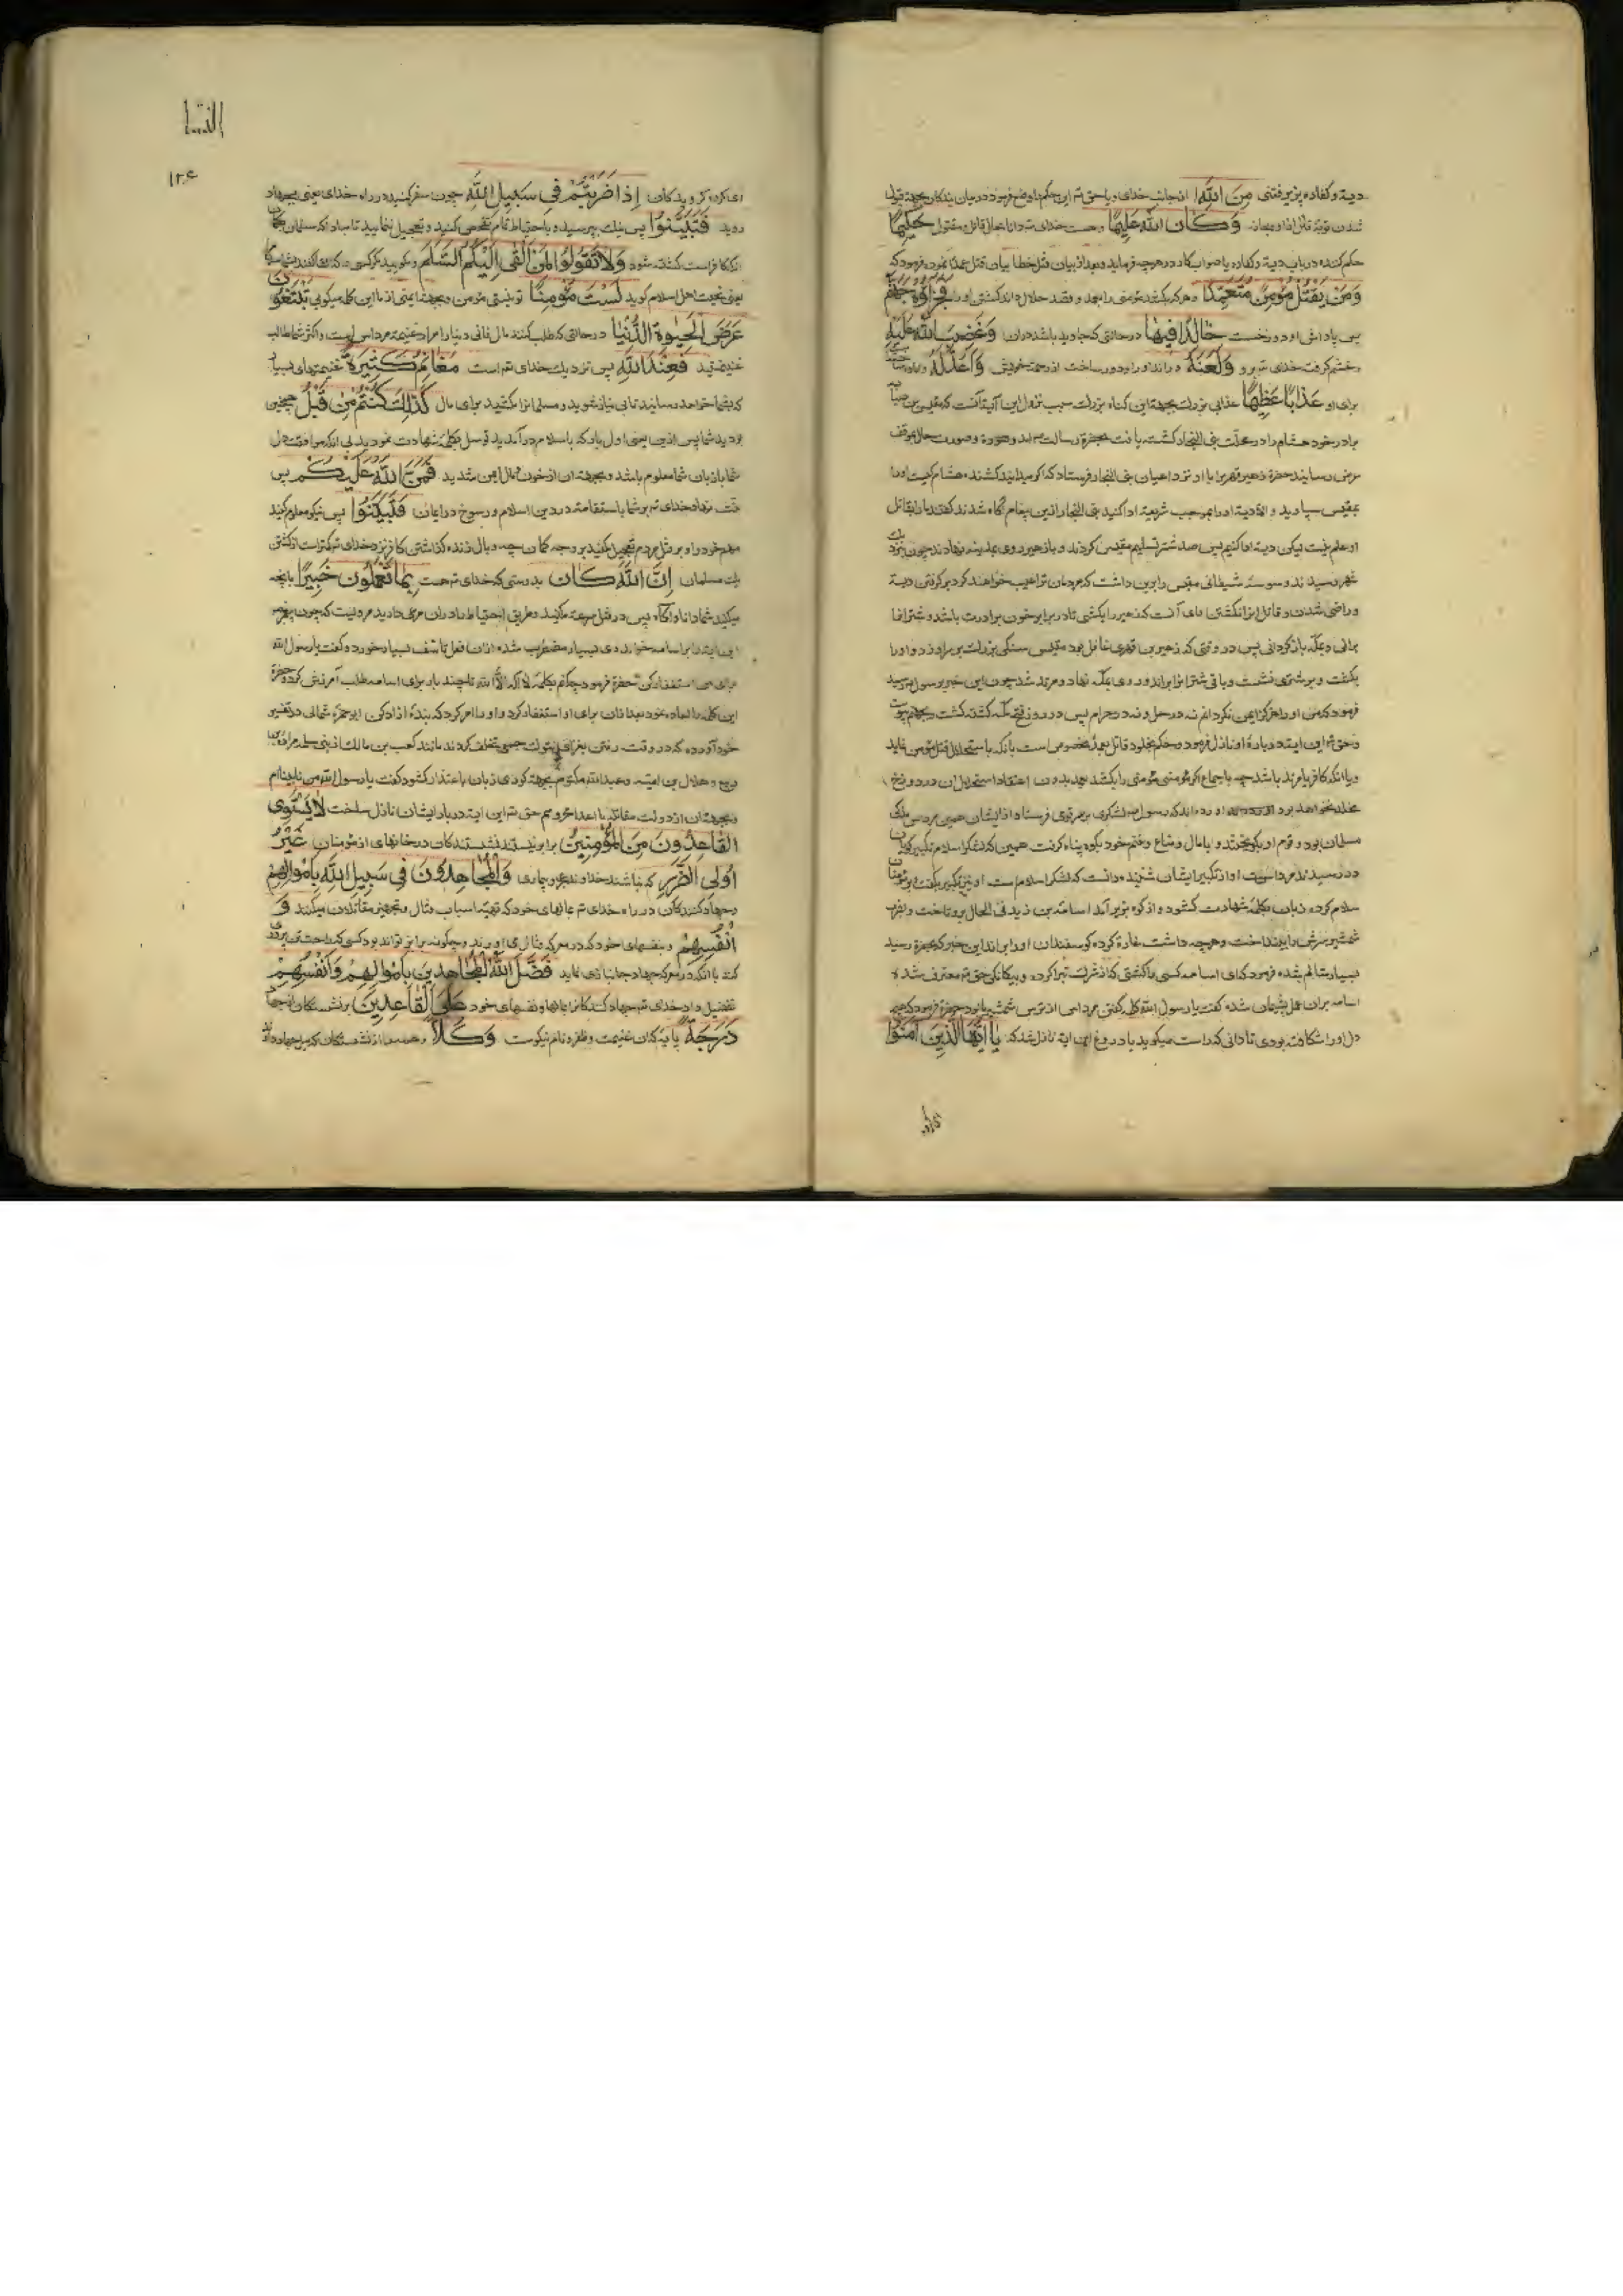 دیة و کفاره پذیرفتنی مِنَ اللّٰهِ از جانب خدای و یا حق تم این حکم را وضع فرمود در میان بندگان بجهة قبول
شدن توبۀ قاتل وَكَانَ اللّٰهُ عَلِيمًا و هست خدای تم دانا بحال قاتل و مقتول حَكِيمًا
حکم کننده در باب دیة و کفاره یا صواب کار در هرچه فرماید و بعد از بیان قتل خطا بیان قتل عمد نموده فرمود که
وَمَنْ يَقْتُلْ مُؤْمِنًا مُتَعَمِّدًا و هر که بکشد مؤمنی را بعمد و قصد حلال داند کشتن او را فَجَزَاؤُهُ جَهَنَّمُ
پس پاداش او دوزخست خَالِدًا فِيهَا در حالتی که جاوید باشد دران وَغَضِبَ اللّٰهُ عَلَيْهِ
و خشم گرفت خدای تم برو وَلَعَنَهُ و براند او را و دور ساخت از رحمت خویش وَأَعَدَّ لَهُ و آماده ساخت
برای او عَذَابًا عَظِيمًا عذابی بزرگ بجهة این گناه بزرگ سبب نزول این آیة آنست که مقیس بن صبابه
برادر خود هشام را در محلت بنی النجار کشته یافت بحضرة رسالت آمد و صورت حال بموقف
عرض رسانید حضرة زهیر فهری را با او نزد اعیان بنی النجار فرستاد که اگر میدانید کشنده هشام کیست او را
بمقیس سپارید و الا دیة او را بموجب شریعة ادا کنید بنی النجار ازین پیغام آگاه شدند گفتند ما را بقاتل
او علم نیست لیکن دیة ادا کنیم پس صد شتر تسلیم مقیس کردند و باز زهیر روی بمدینه نهادند چون نزدیک
شهر رسیدند وسوسۀ شیطانی مقیس را برین داشت که مردمان ترا عیب خواهند کرد بر گرفتن دیة
و راضی شدن و قاتل را نا کشتن رای آنست که زهیر را بکشی تا در برابر خون برادرت باشد و شتران را
برانی و بمکه باز گردانی پس در وقتی که زهیر بن فهری غافل بود مقیس سنگی بزرگ بر سر او زد و او را
بکشت و بر شتری نشست و باقی شتران را براند و روی بمکه نهاد و مرتد شد چون این خبر برسول رسید
فرمود که من او را هرگز ایمن نگردانم نه در حل و نه در حرم پس در روز فتح مکه کشته گشت و بجهنم پیوست
و حق تم این ایة در بارۀ او نازل فرمود و حکم بخلود قاتل بعمد مخصوص است بانکه باستحلال قتل مؤمن نماید
و یا آنکه کافر یا مرتد باشد چه باجماع اگر مؤمنی مؤمنی را بکشد بعمد بدون اعتقاد استحلال آن در دوزخ
مخلد نخواهد بود آورده اند که رسول لشکری بر قومی فرستاد از ایشان همین مرداس فدکی
مسلمان بود و قوم او بگریختند و با مال و متاع و غنم خود بکوه پناه گرفت همین که لشکر اسلام تکبیر گویان
در رسیدند مرداس آواز تکبیر ایشان شنید دانست که لشکر اسلام است او نیز تکبیر بگفت و بر مؤمنان
سلام کرده زبان بکلمۀ شهادت گشود و از کوه بزیر آمد اسامة بن زید فی الحال برو تاخت و بضرب
شمشیر سرش را بینداخت و هرچه داشت غارة کرده گوسفندان او را براند این خبر که بحضرة رسید
بسیار متالم شده فرمود که ای اسامه کسی را کشتی که از شرک تبرا کرده و بیگانگی حق تم معترف شده
اسامه بران عمل پشیمان شده گفت یا رسول الله کلمه گفتن مرداس از ترس شمشیر بود حضرة فرمود که
دل او را شکافته بودی تا دانی که راست میگوید یا دروغ این ایة نازل شد که يَا أَيُّهَا الَّذِينَ آمَنُوا
النسا
ای گروه گرویدگان إِذَا ضَرَبْتُمْ فِي سَبِيلِ اللّٰهِ چون سفر کنید در راه خدای یعنی بجهاد
روید فَتَبَيَّنُوا پس نیک بپرسید و باحتیاط تمام تفحص کنید و تعجیل منمایید تا مبادا که مسلمان بگمان
انکه کافر است کشته شود وَلَا تَقُولُوا لِمَنْ أَلْقَى إِلَيْكُمُ السَّلَامَ و مگویید مر کسی را که القا کند بشما سلام
یعنی تحیت اهل اسلام گوید لَسْتَ مُؤْمِنًا تو نیستی مؤمن و بجهة ایمنی از ما این کلمه میگویی تَبْتَغُونَ
عَرَضَ الْحَيٰوةِ الدُّنْيَا در حالتی که طلب کنند مال فانی دنیا را مراد غنیمة مرداس است و اگر شما طالب
غنیمتید فَعِنْدَ اللّٰهِ پس نزدیک خدای تم است مَغَانِمُ كَثِيرَةٌ غنیمتهای بسیار
که بشما خواهد رسانید تا بی نیاز شوید و مسلمانرا مکشید برای مال كَذٰلِكَ كُنْتُمْ مِنْ قَبْلُ همچنین
بودید شما پیش ازین یعنی اول بار که باسلام در آمدید توسل بکلمۀ شهادت نمودید بی انکه موافقت دل
شما با زبان شما معلوم باشد و بجهة ان از خون و مال ایمن شدید فَمَنَّ اللّٰهُ عَلَيْكُمْ پس
منت نهاد خدای تم بر شما باستقامة در دین اسلام و رسوخ در ایمان فَتَبَيَّنُوا پس نیکو معلوم کنید
مهم خود را و بر قتل مردم تعجیل مکنید بر وجه گمان چه وبال زنده گذاشتن کافر نزد خدای تم کمتر است از کشتن
یک مسلمان إِنَّ اللّٰهَ كَانَ بدرستی که خدای تم هست بِمَا تَعْمَلُونَ خَبِيرًا بانچه
میکنید شما دانا و آگاه پس در قتل سرعة مکنید و طریق احتیاط را در ان مرعی دارید مرویست که چون پیغمبر
این ایة را بر اسامه خواند وی بسیار مضطرب شد و ازان فعل تاسف بسیار خورد و گفت یا رسول الله
برای من استغفار کن حضرة فرمود چه کنم بکلمۀ لا اله الا الله تا چند بار برای اسامه طلب آمرزش کرد و حضرة
این کلمه را اعاده نمود بعد ازان برای او استغفار کرد و او را امر کرد که بندۀ ازاد کن ابو حمزۀ ثمالی در تفسیر
خود آورده که در وقت رفتن بغزای تبوک جمعی تخلف کردند مانند کعب بن مالک از بنی سلمه و مرارة بن
ربیع و هلال بن امیه و عبدالله مکتوم بجهة کوری زبان باعتذار گشود گفت یا رسول الله من نابینا ام
و بجهة ان از دولت مقاتله با اعدا محروم حق تم این ایة در بارۀ ایشان نازل ساخت لَا يَسْتَوِي
الْقَاعِدُونَ مِنَ الْمُؤْمِنِينَ برابر نیستند نشستندکان در خانهای از مؤمنان غَيْرُ
أُولِي الضَّرَرِ که نباشند خداوند عجز و بیماری وَالْمُجَاهِدُونَ فِي سَبِيلِ اللّٰهِ بِأَمْوَالِهِمْ
و جهاد کنندکان در راه خدای تم بمالهای خود که تهیۀ اسباب قتال و تجهیز مقاتلان میکنند وَ
أَنْفُسِهِمْ و بنفسهای خود که در معرکۀ قتال می اورند و چگونه برابر تواند بود کسی که راحت تن پروری
کند با انکه در معرکۀ جهاد جانبازی نماید فَضَّلَ اللّٰهُ الْمُجَاهِدِينَ بِأَمْوَالِهِمْ وَأَنْفُسِهِمْ
تفضیل داد خدای تم جهاد کنندکانرا بمالها و نفسهای خود عَلَى الْقَاعِدِينَ بر نشستکان از جهاد
دَرَجَةً پایۀ که ان غنیمت و ظفر و نام نیکوست وَكُلًّا و همه را از نشستکان که